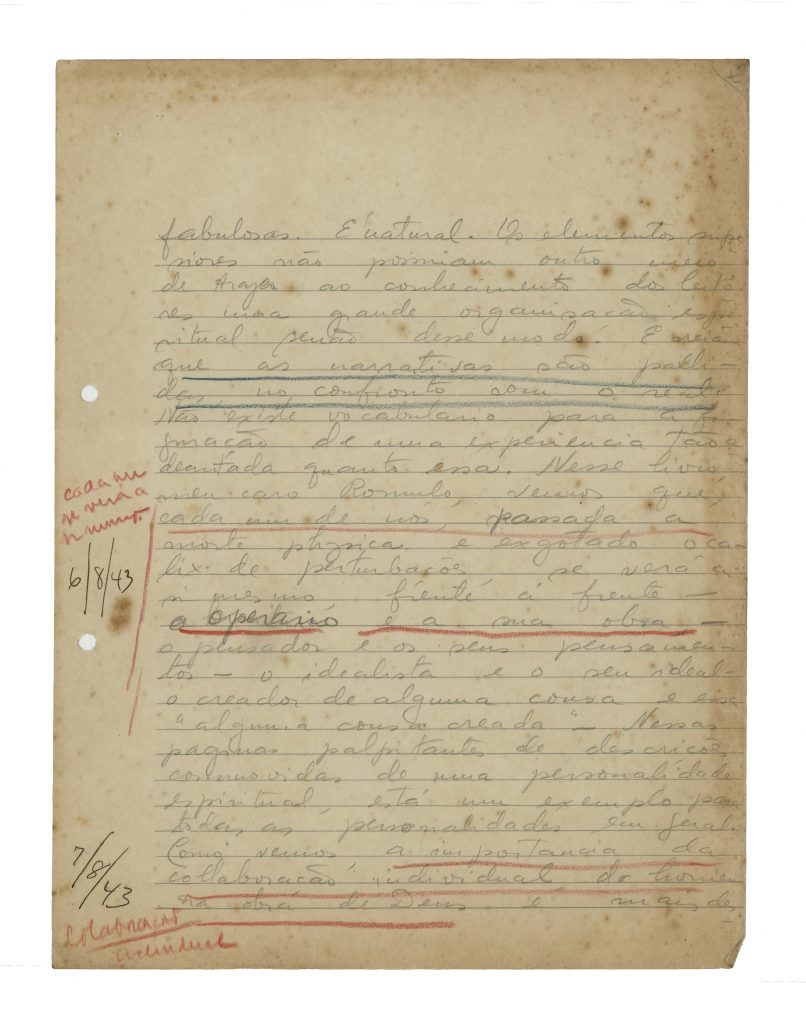 fabulosas. É natural. Os elementos supe
riores não possuiam outro meio
de trazer ao conhecimento dos leito
res uma grande organisação espi
ritual senão desse modo. E creia
que as narrativas são palli-
das, no confronto com o real.
Não existe vocabulario para a fi-
guração de uma experiencia tão a
deantada quanto essa. Nesse livro,
meu caro Romulo, vemos que,
cada um de nós, passada a
morte physica e exgotado o ca-
lix de perturbações, se verá a
si mesmo frente á frente —
o operario e a sua obra —
o pensador e os seus pensamen-
tos — o idealista e o seu ideal —
o creador de alguma cousa e essa
"alguma cousa creada" — Nessas
paginas palpitantes de descrições
commovidas de uma personalidade
espiritual, está um exemplo para
todas as personalidades em geral.
Como vemos, a importancia da
collaboração individual do homem
na obra de Deus é mais de-
cada um
se verá a
si mesmo
6/8/43
7/8/43
Colaboração
individual